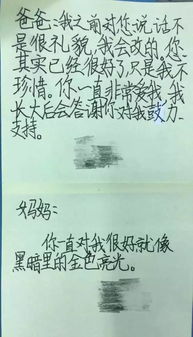 爸爸：我之前对您说话不
是很礼貌，我会改的。您
其实已经很好了，只是我不
珍惜。你一直非常爱我，我
长大后会答谢你对我鼓力
支持。
妈妈：
你一直对我很好就像
黑暗里的金色亮光。